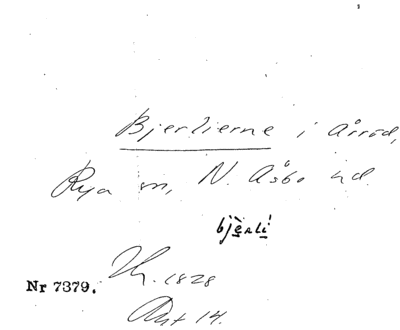 Bjerlierne i Årröd,
Rya sn, N. Åsbo hd.
bjèrli
Nr 7379. Th. 1828
Akt 14.